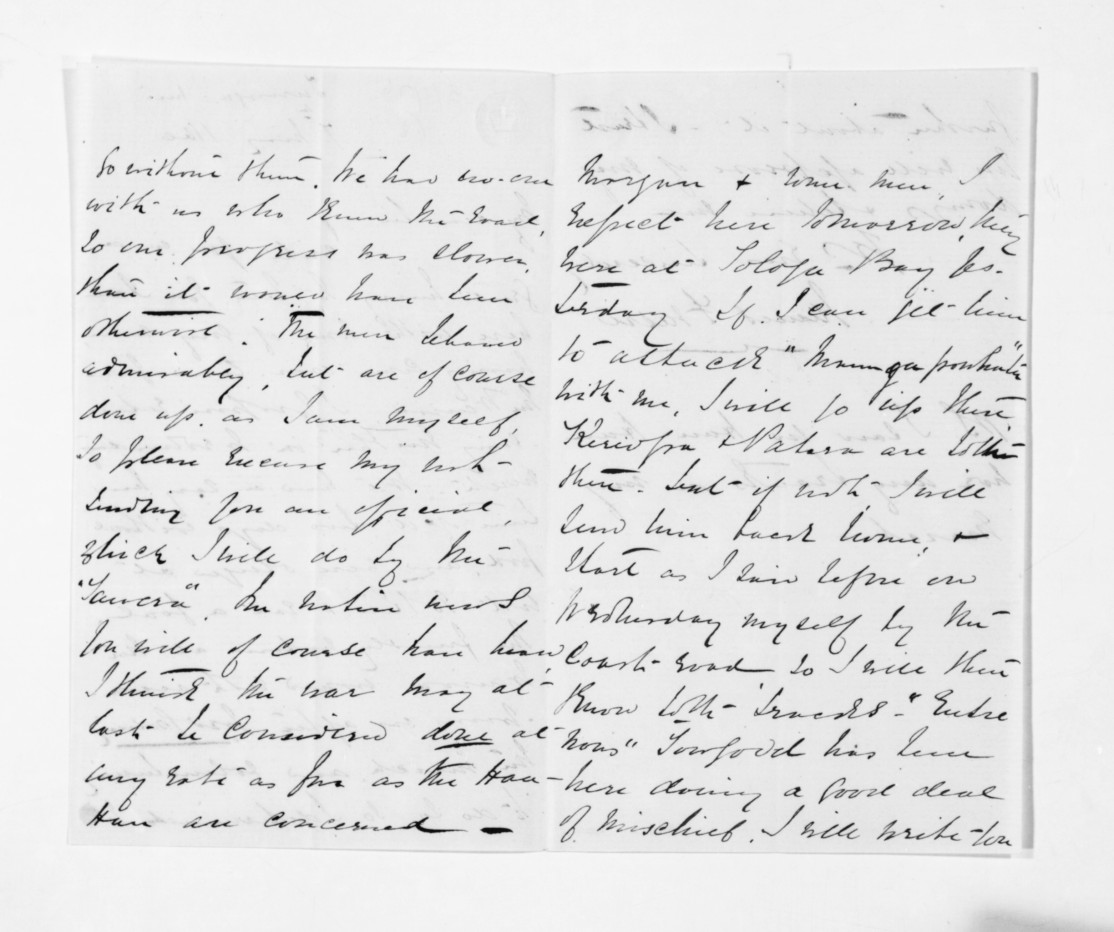 go without them. We had no-one
with us who knew the road,
so our progress was slower,
than it would have been
otherwise. The men behaved
admirably, but are of course
done up. as I am myself,
so please excuse my not
sending you an official,
which I will do by the
"Tawera". The native news
you will of course have heard,
I think the war may at
last be considered done at
any rate as far as the Hau-
Hau are concerned —
Morgan & some men, I
expect here tomorrow, they
were at Tologa Bay yes-
terday If I can get him
to attack "Maungapowhatu"
with me, I will go up there
Kereopa & are both
there. but if not I will
send him back home, &
start as I said before on
Wednesday myself by the
Coast road so I will then
know both tracks - "Entre
nous" Towgood has been
here doing a good deal
of mischief. I will write you